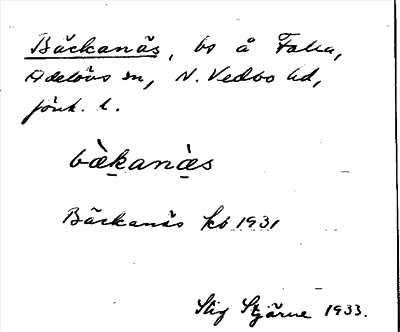 Bäckanäs, bs å Falla,
Adelövs sn, N. Vedbo hd,
jönk. l.
bæ̀kanæ̀s
Bäckanäs kb 1931
Stig Stjärne 1933.